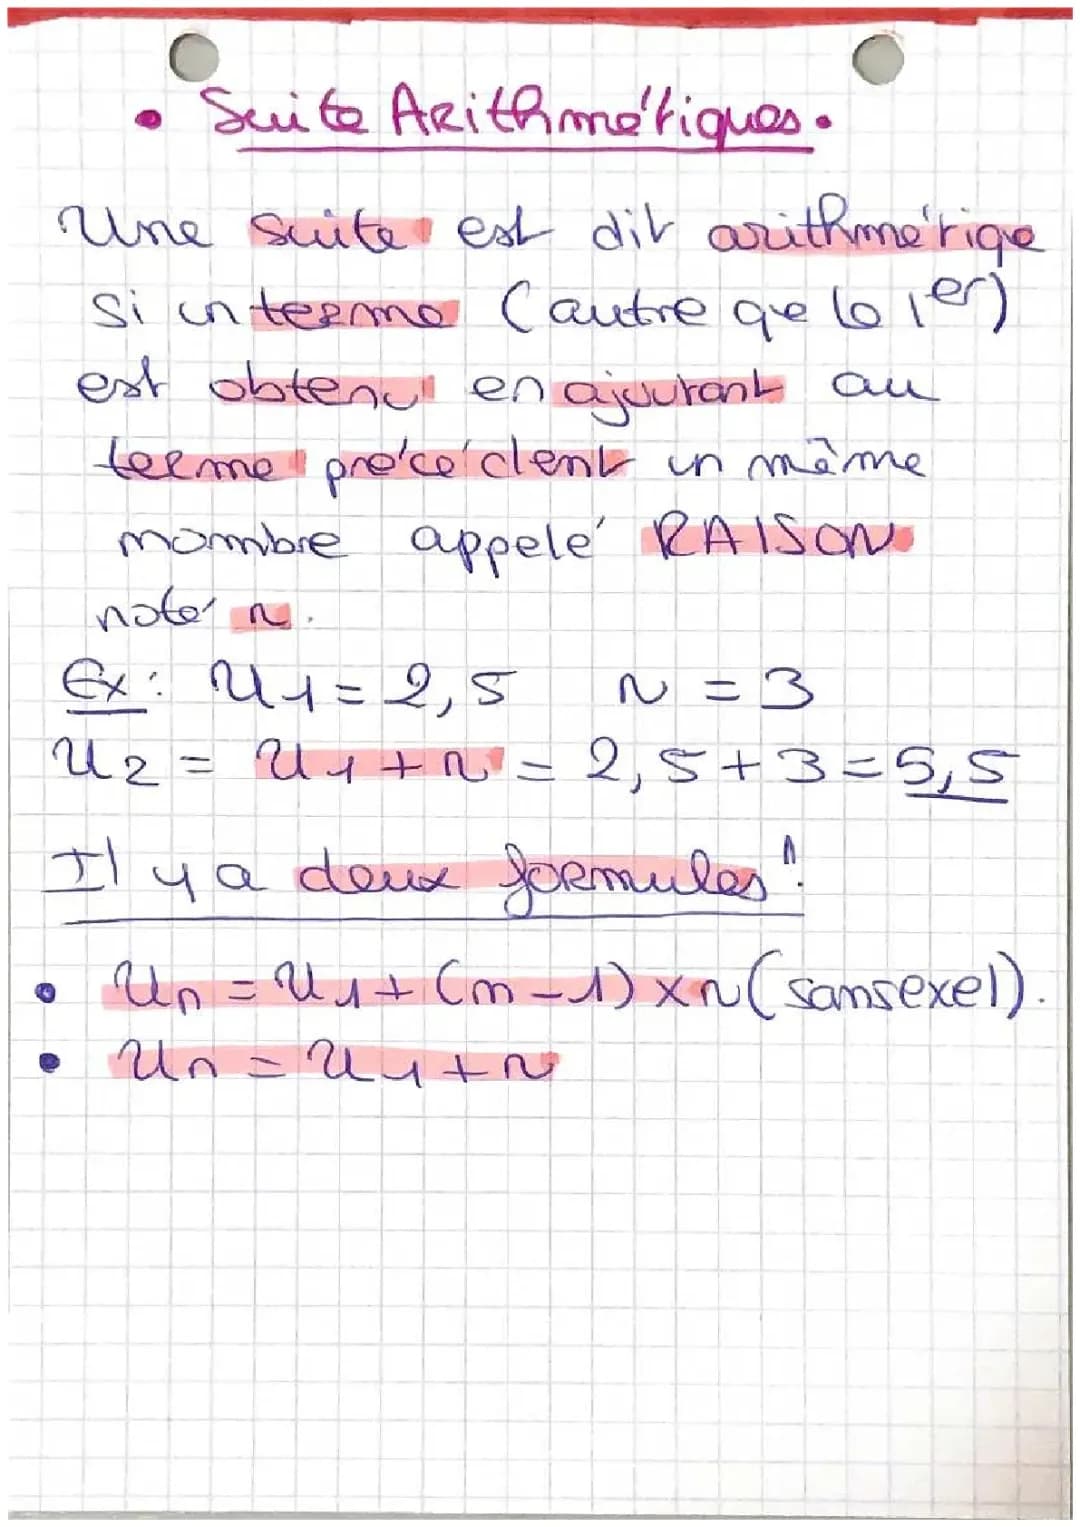 • Suite Arithmétiques.
Une suite est dit arithmétique
si un terme (autre que le 1er)
est obtenu en ajoutant au
terme précédent un même
nombre appelé RAISON
noté r.
Ex: U1 = 2,5 r = 3
U2 = U1 + r = 2,5 + 3 = 5,5
Il y a deux formules !
• Un = U1 + (n - 1) x r (sans exel).
• Un = U1 + r